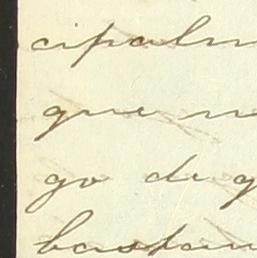 cipalm
que n
go de q
bastan